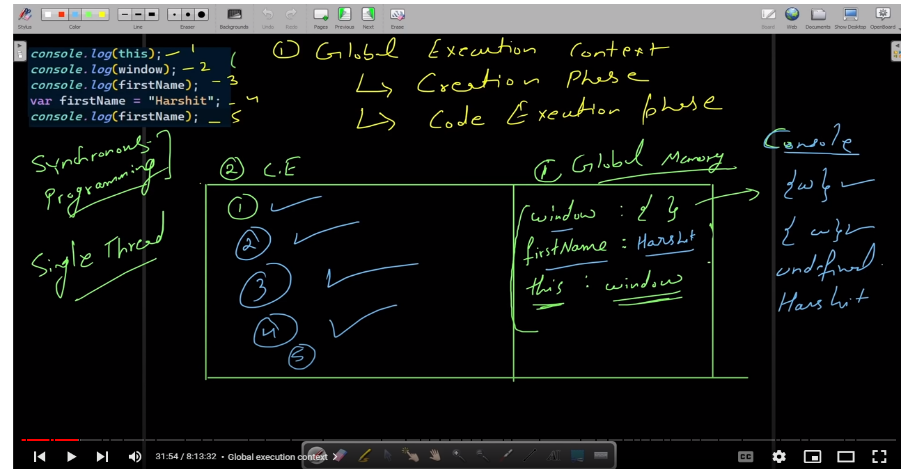 Stylus
Color
Line
Eraser
Backgrounds
Undo
Redo
Pages
Previous
Next
Erase
Board
Web
Documents
Show Desktop
OpenBoard
console.log(this); — 1
console.log(window); — 2
console.log(firstName); — 3
var firstName = "Harshit"; — 4
console.log(firstName); — 5
① Global Execution Context
↳ Creation Phase
↳ Code Execution phase
Synchronous
Programming
Single Thread
② C.E
① Global Memory
Console
①
②
③
④
⑤
window : { }
firstName : Harshit
this : window
{w}
{w}
undefined.
Harshit
31:54 / 8:13:32 • Global execution context >
CC